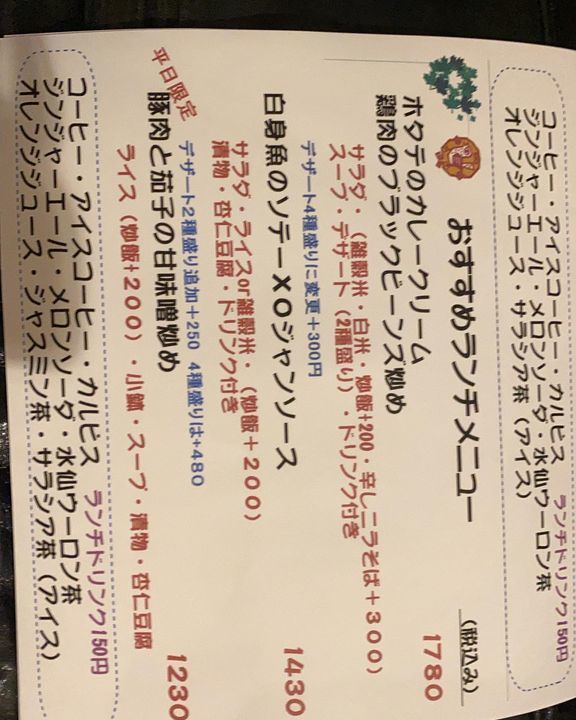 ランチドリンク150円
コーヒー・アイスコーヒー・カルピス
ジンジャーエール・メロンソーダ・水仙ウーロン茶
オレンジジュース・サラシア茶（アイス）
おすすめランチメニュー
（税込み）
ホタテのカレークリーム
鶏肉のブラックビーンズ炒め 1780
サラダ・（雑穀米・白米・炒飯+200・辛しニラそば＋３００）
スープ・デザート（2種盛り）・ドリンク付き
デザート4種盛りに変更＋300円
白身魚のソテーＸＯジャンソース 1430
サラダ・ライスor雑穀米・（炒飯＋２００）
漬物・杏仁豆腐・ドリンク付き
デザート2種盛り追加+250 4種盛りは+480
平日限定
豚肉と茄子の甘味噌炒め 1230
ライス（炒飯+２００）・小鉢・スープ・漬物・杏仁豆腐
ランチドリンク150円
コーヒー・アイスコーヒー・カルピス
ジンジャーエール・メロンソーダ・水仙ウーロン茶
オレンジジュース・ジャスミン茶・サラシア茶（アイス）